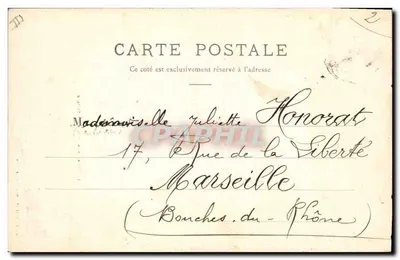 III
2
CARTE POSTALE
Ce côté est exclusivement réservé à l'adresse
Mademoiselle Juliette Honorat
17, Rue de la Liberté
Marseille
(Bouches-du-Rhône)